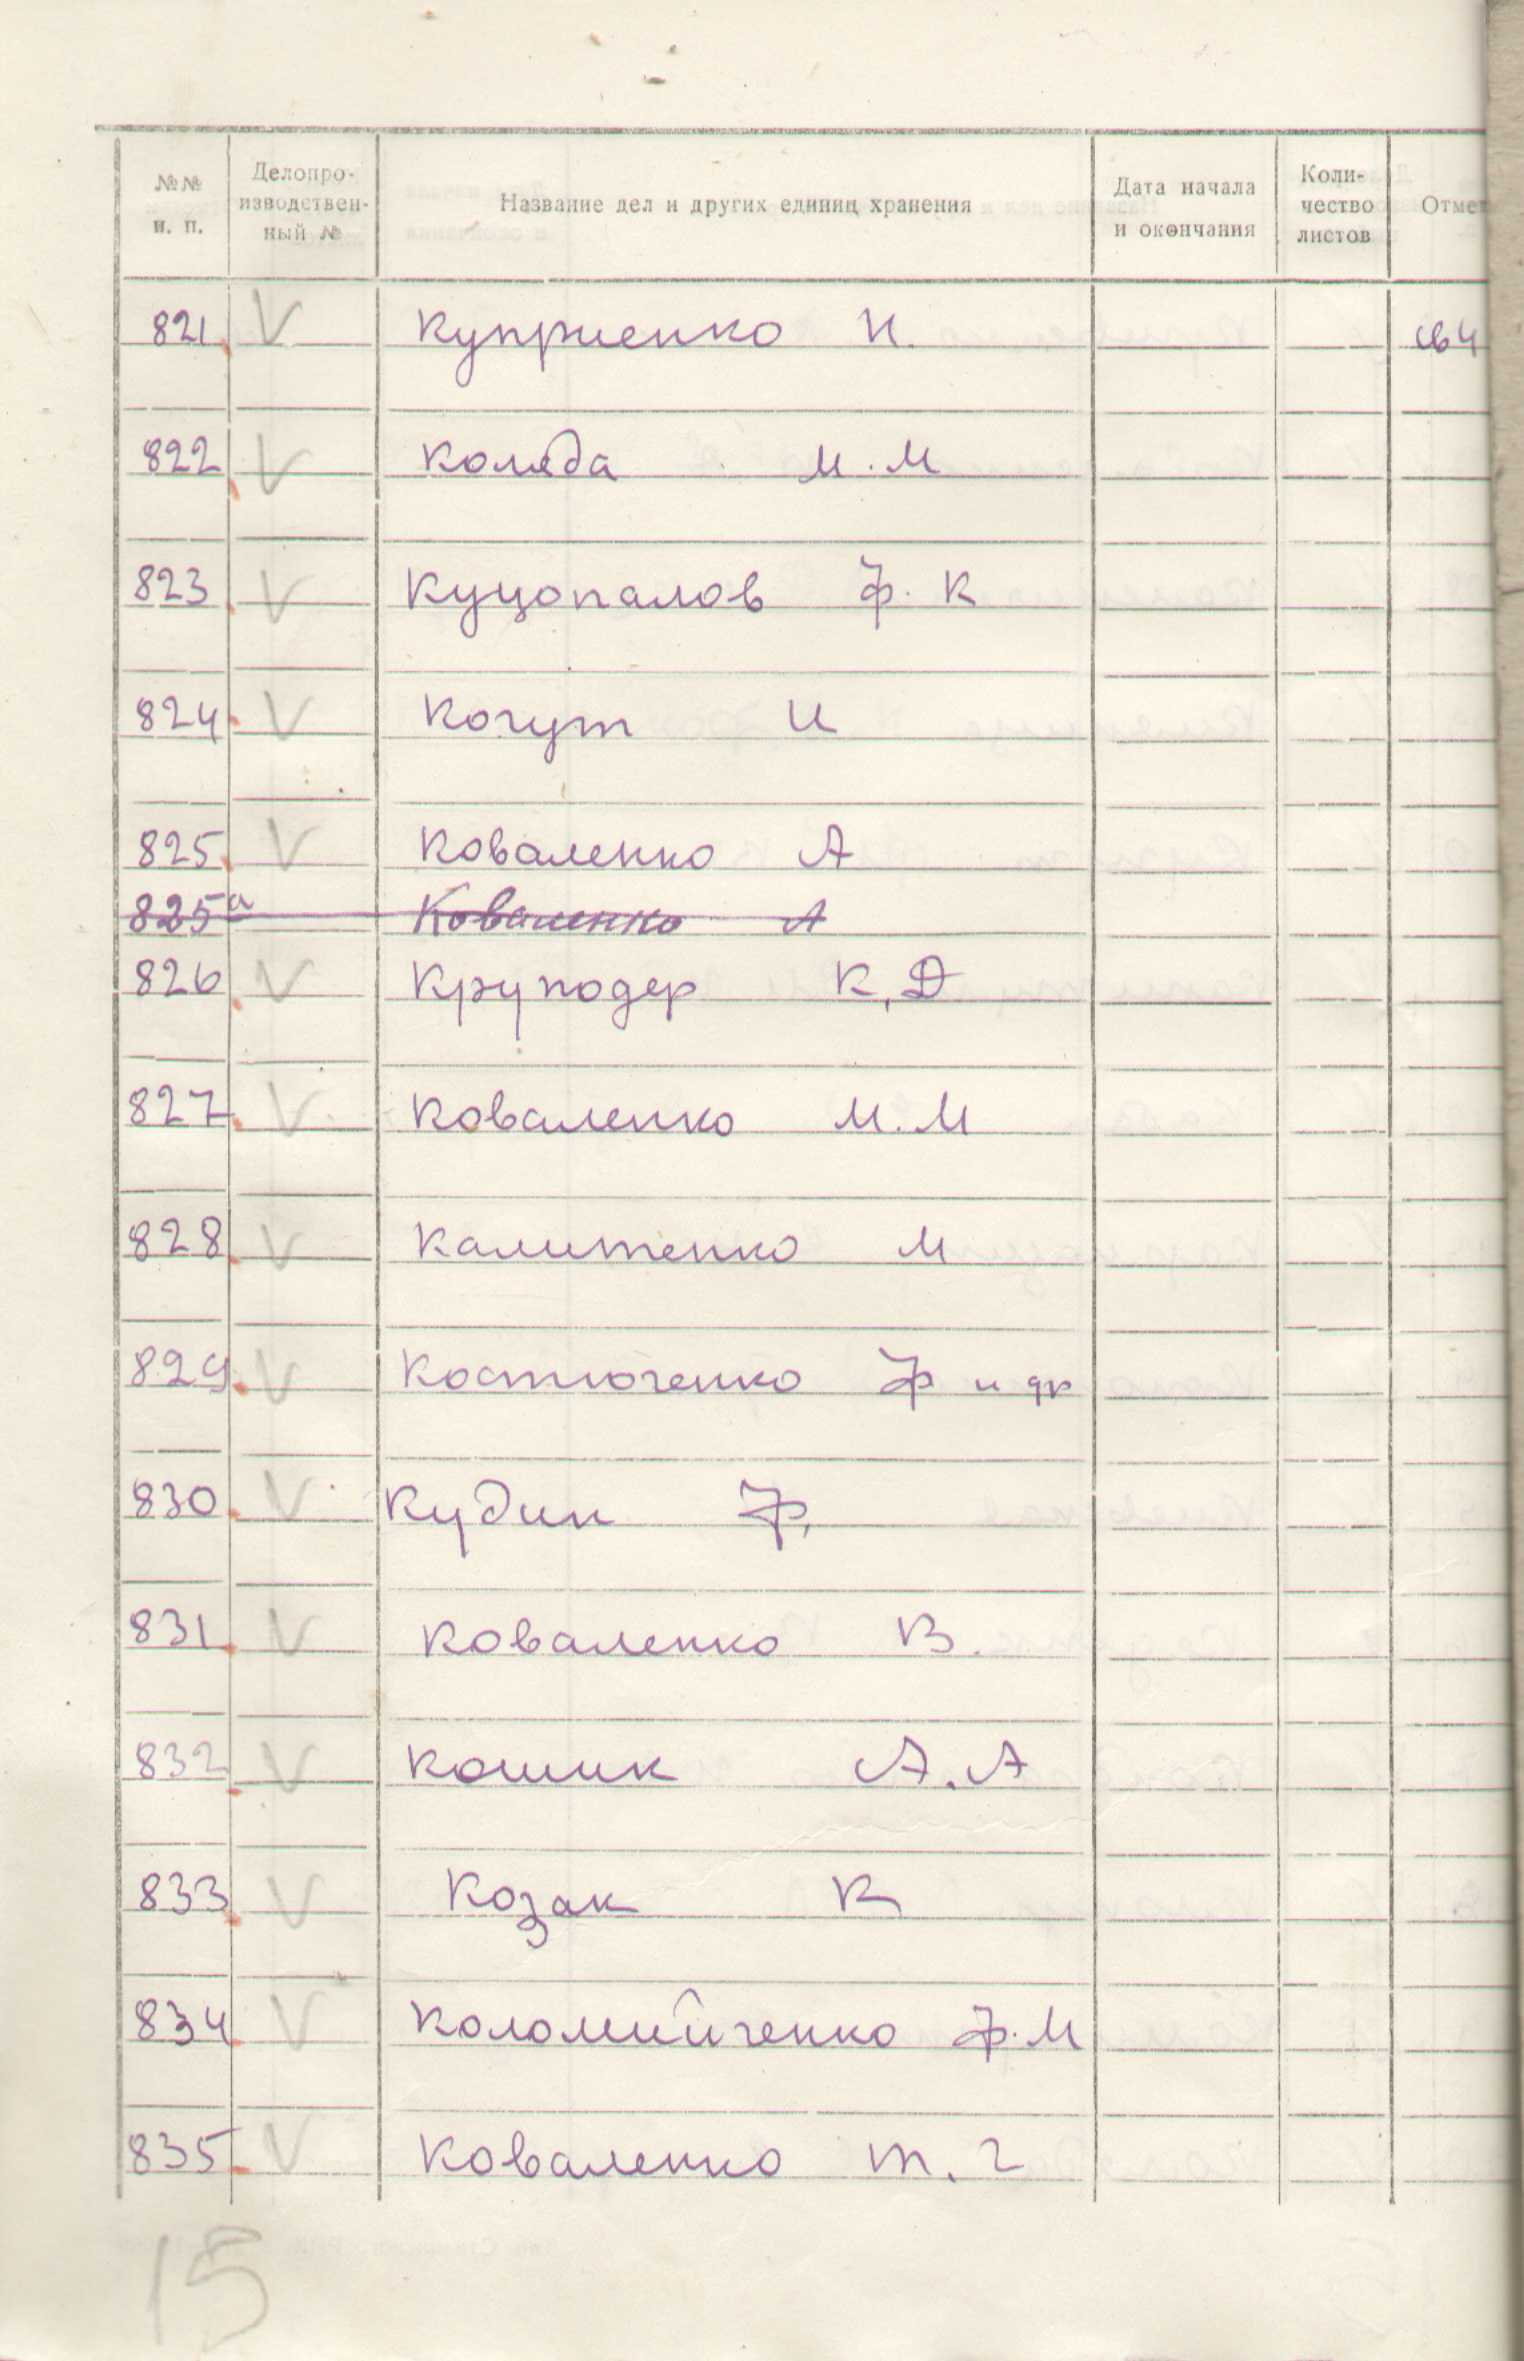 №№ п. п. Делопроизводственный № Название дел и других единиц хранения Дата начала и окончания Количество листов Отмет
821 V Куприенко И.
822 V Коляда М.М
823 V Куцопалов Ф.К
824 V Когут И
825 V Коваленко А
825а Коваленко А
826 V Круподер К,Д
827 V Коваленко М.М
828 V Калитенко М
829 V Костюченко Ф и др
830 V Кудин Ф,
831 V Коваленко В.
832 V Кошик А.А
833 V Козак К
834 V Коломийченко Ф.М
835 V Коваленко Т.Г
15